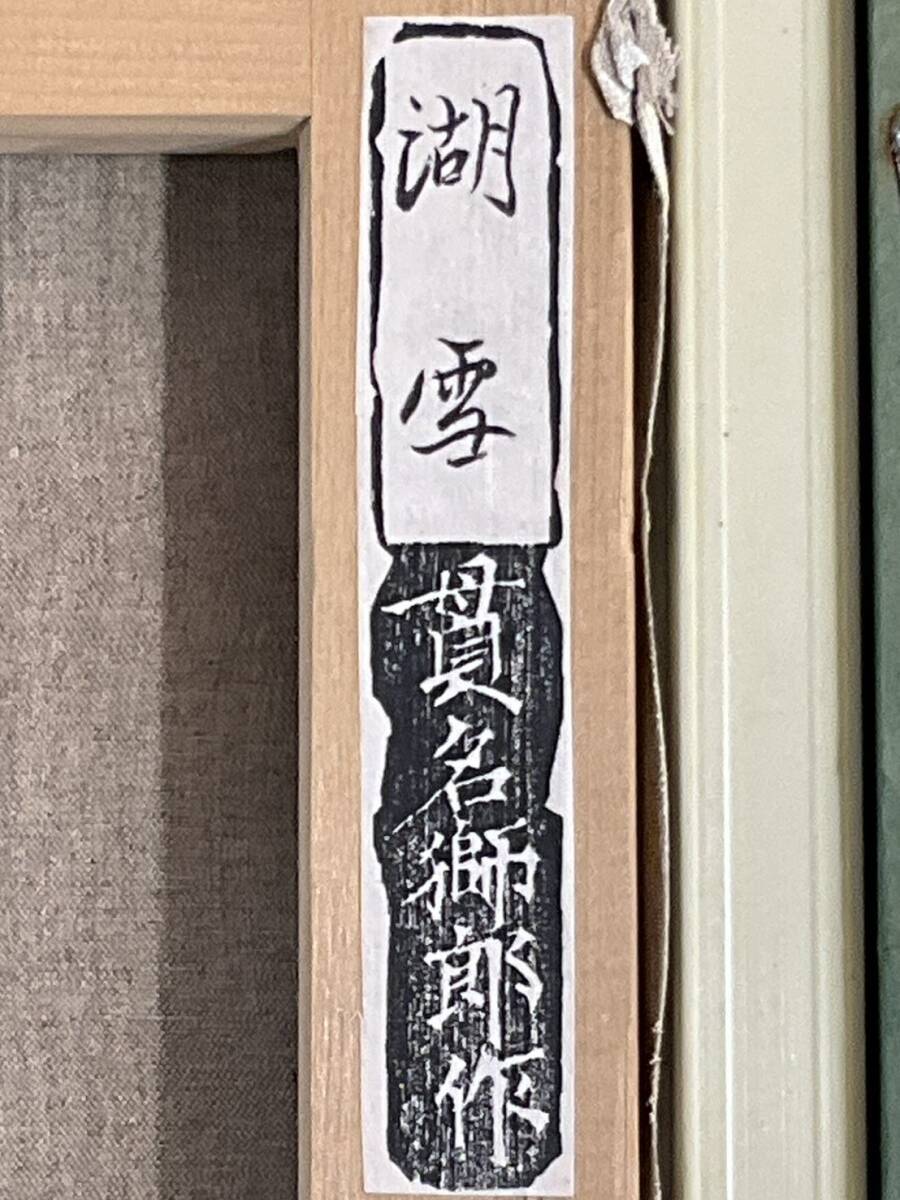 湖雪
貫名獅郎作